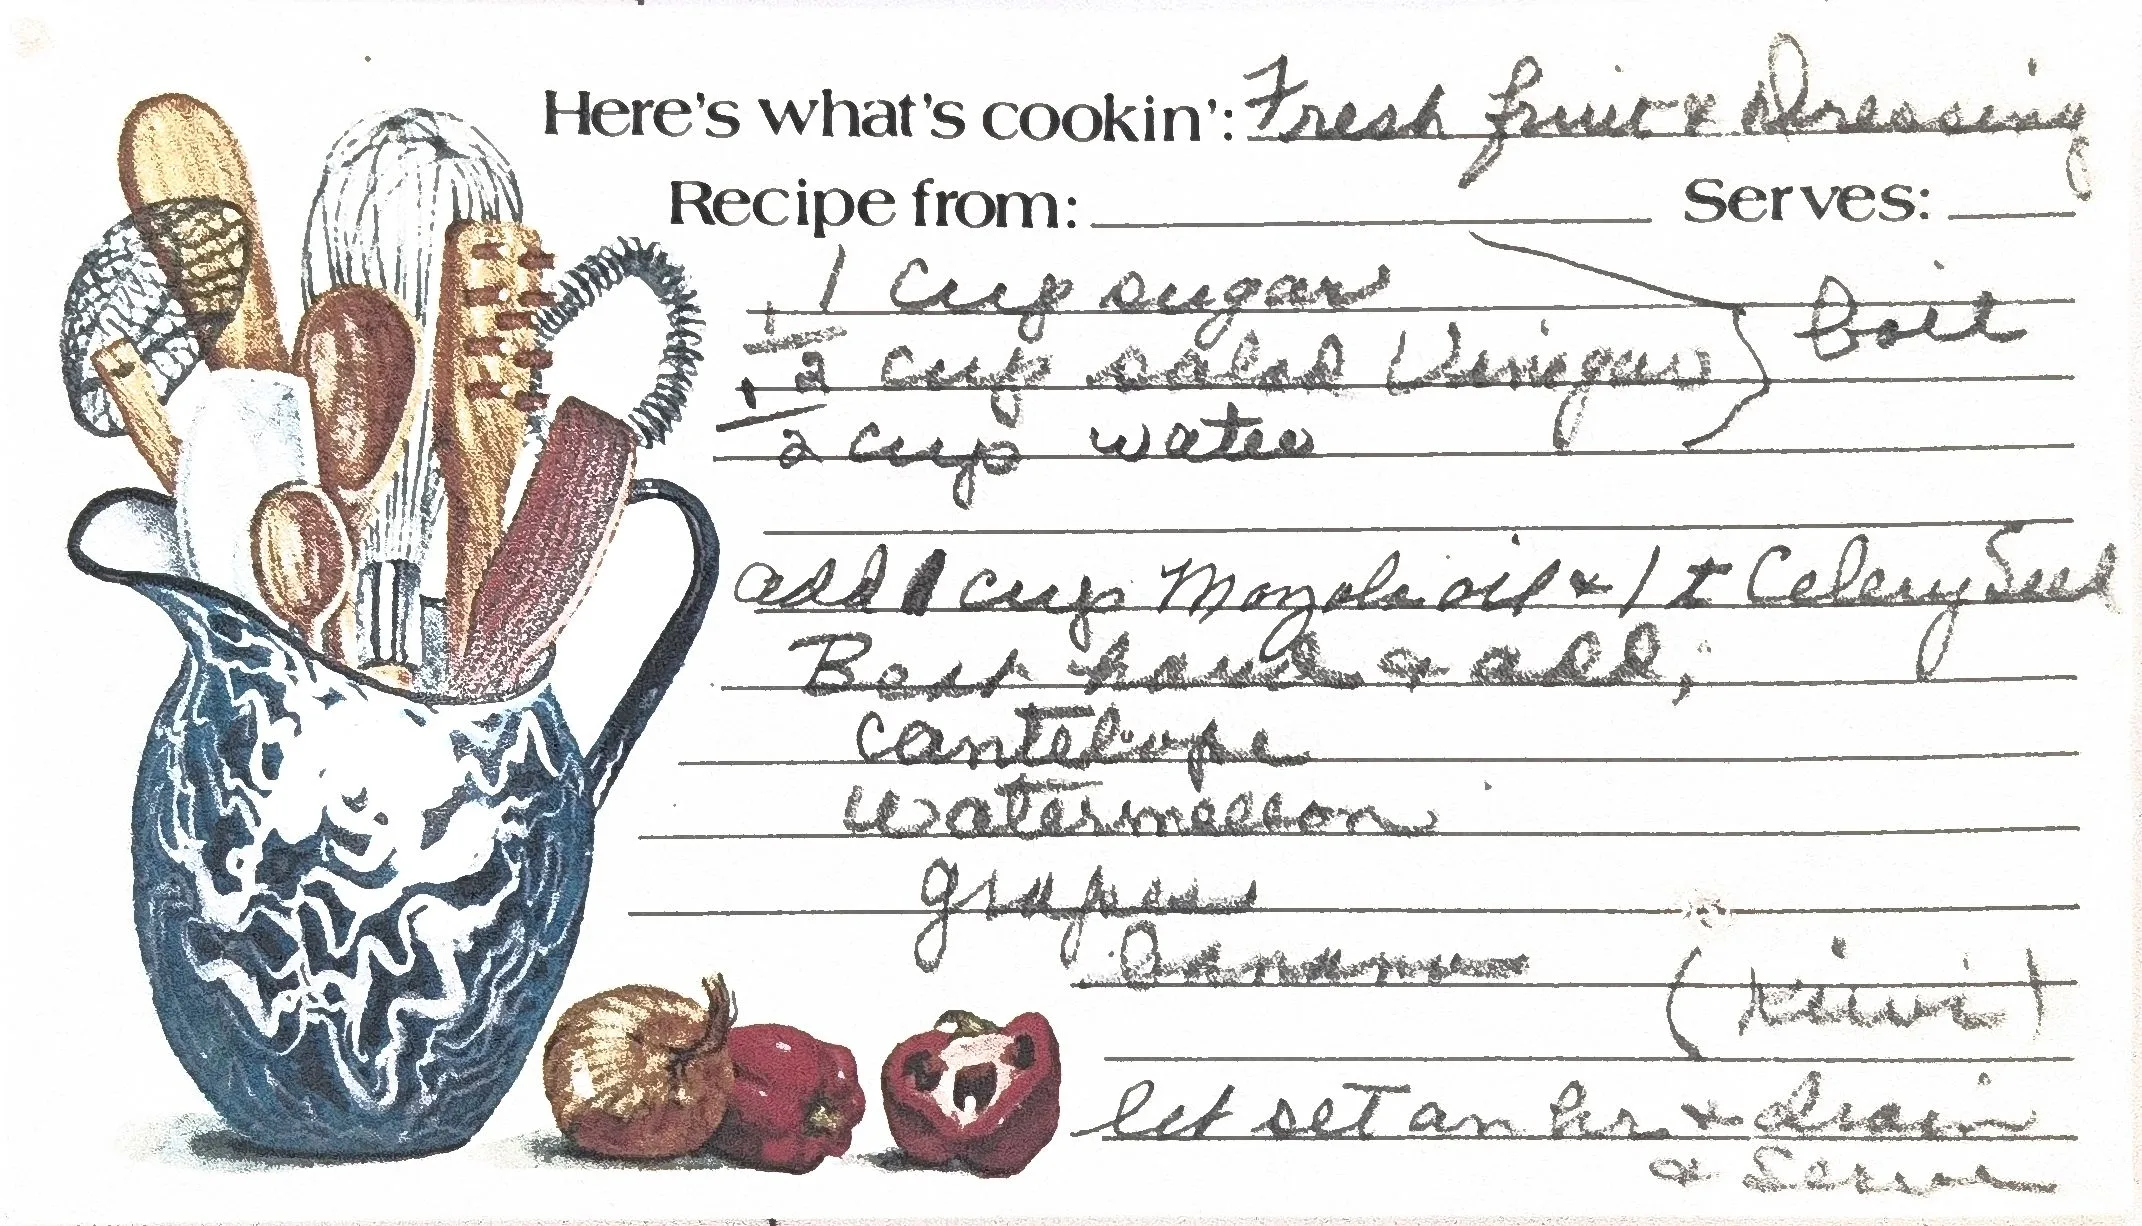 Here's what's cookin': Fresh fruit & Dressing
Recipe from: Serves:
1 cup sugar
1/2 cup salad Vinigar boil
1/2 cup water
add 1 cup Mazola oil & 1 t Celery Seed
Beat hard & add;
cantelope
watermellon
grapes
banana
(kiwi)
let set an hr. & drain
& Serve